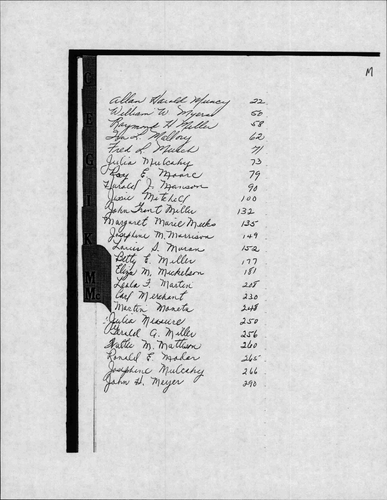 M
C
E
G
I
K
M
Mc
Allan Harold Muncy 22
William W. Myers 50
Raymond H. Miller 58
Ida L. Mallory 62
Fred L. Munch 71
Julia Mulcahy 73
Roy E. Moore 79
Harold J. Manson 90
Josie Mitchell 100
John Front Miller 132
Margaret Marie Meeks 135
Josephine M. Morrison 149
Louis S. Moran 152
Betty E. Miller 177
Eliza M. Mickelson 181
Leola F. Martin 218
Carl Merchant 230
Martin Moneta 248
Julia Measure 250
Gerald G. Miller 256
Walter M. Mattison 260
Ronald E. Moder 265
Josephine Mulcahy 266
John H. Meyer 290